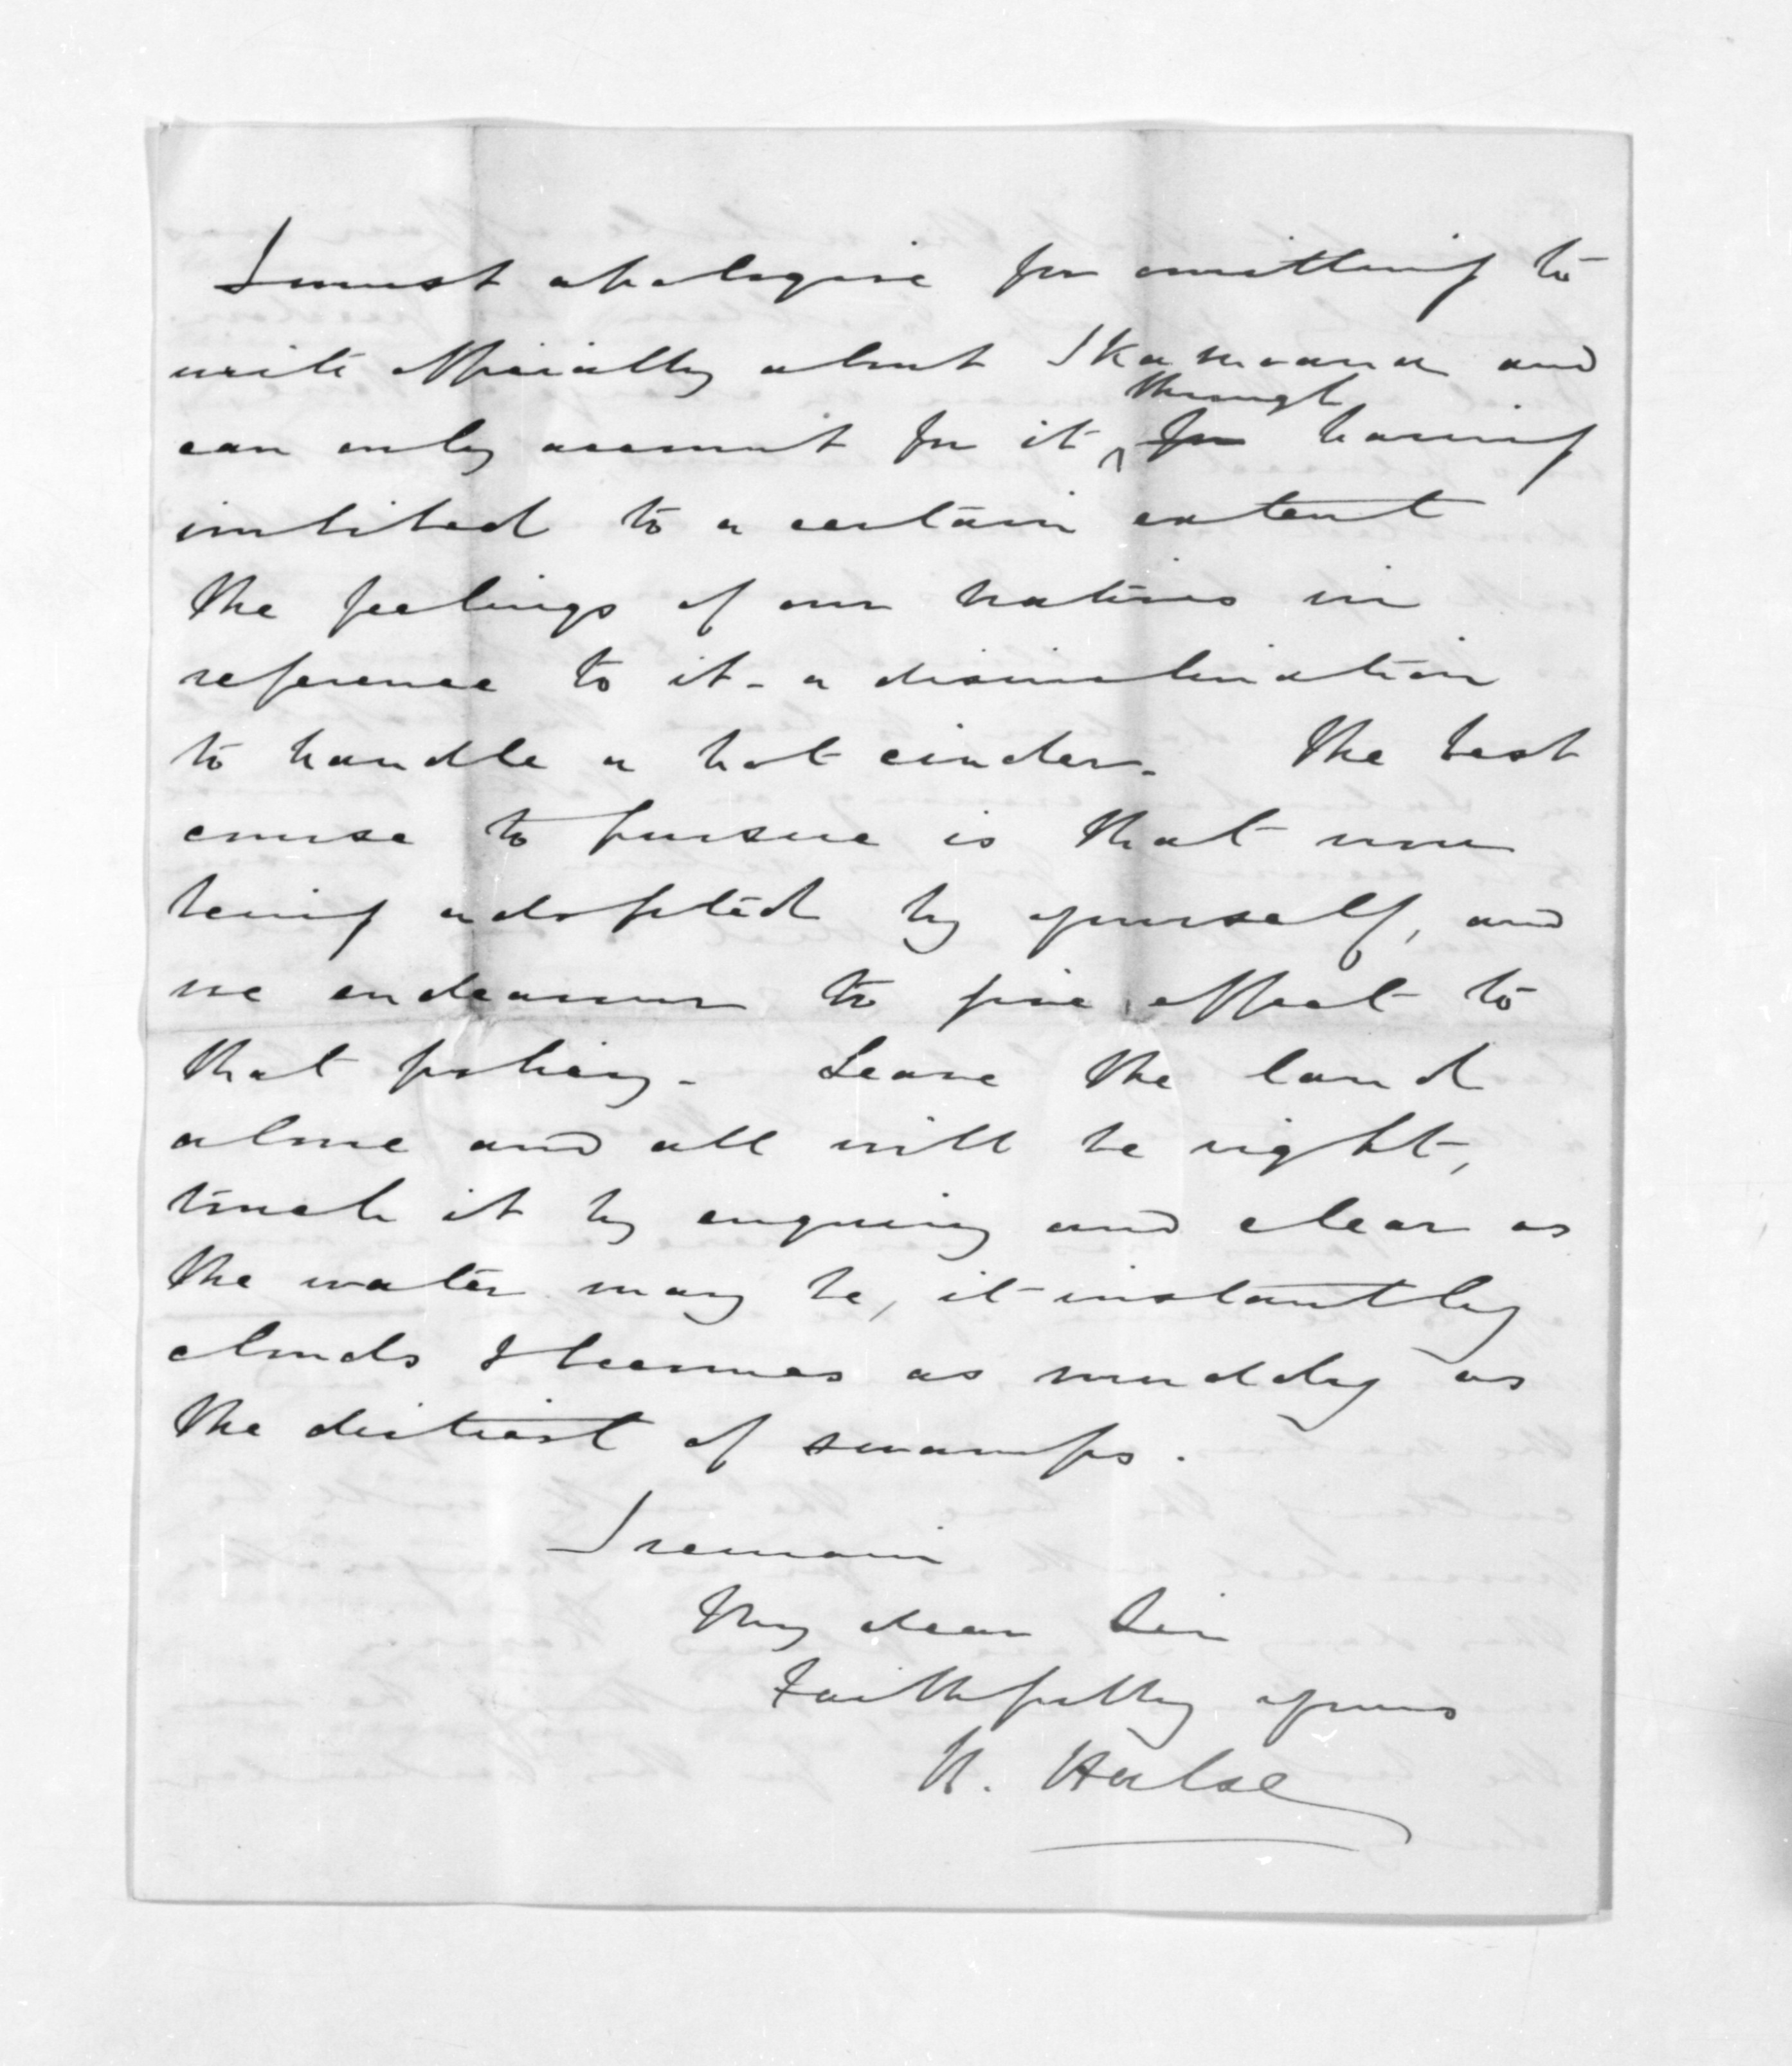 I must apologise for omitting to
write officially about Ikamoana and
through
can only account for it for having
imbibed to a certain extent
the feelings of our natives in
reference to it - a disinclination
to handle a hot cinder. The best
course to pursue is that now
being adopted by yourself, and
we endeavour to give effect to
that policy. Leave the land
alone and all will be right,
touch it by enquiry and clear as
the water may be, it instantly
clouds & becomes as muddy as
the dirtiest of swamps.
I remain
My dear Sir
Faithfully yours
H. Halse